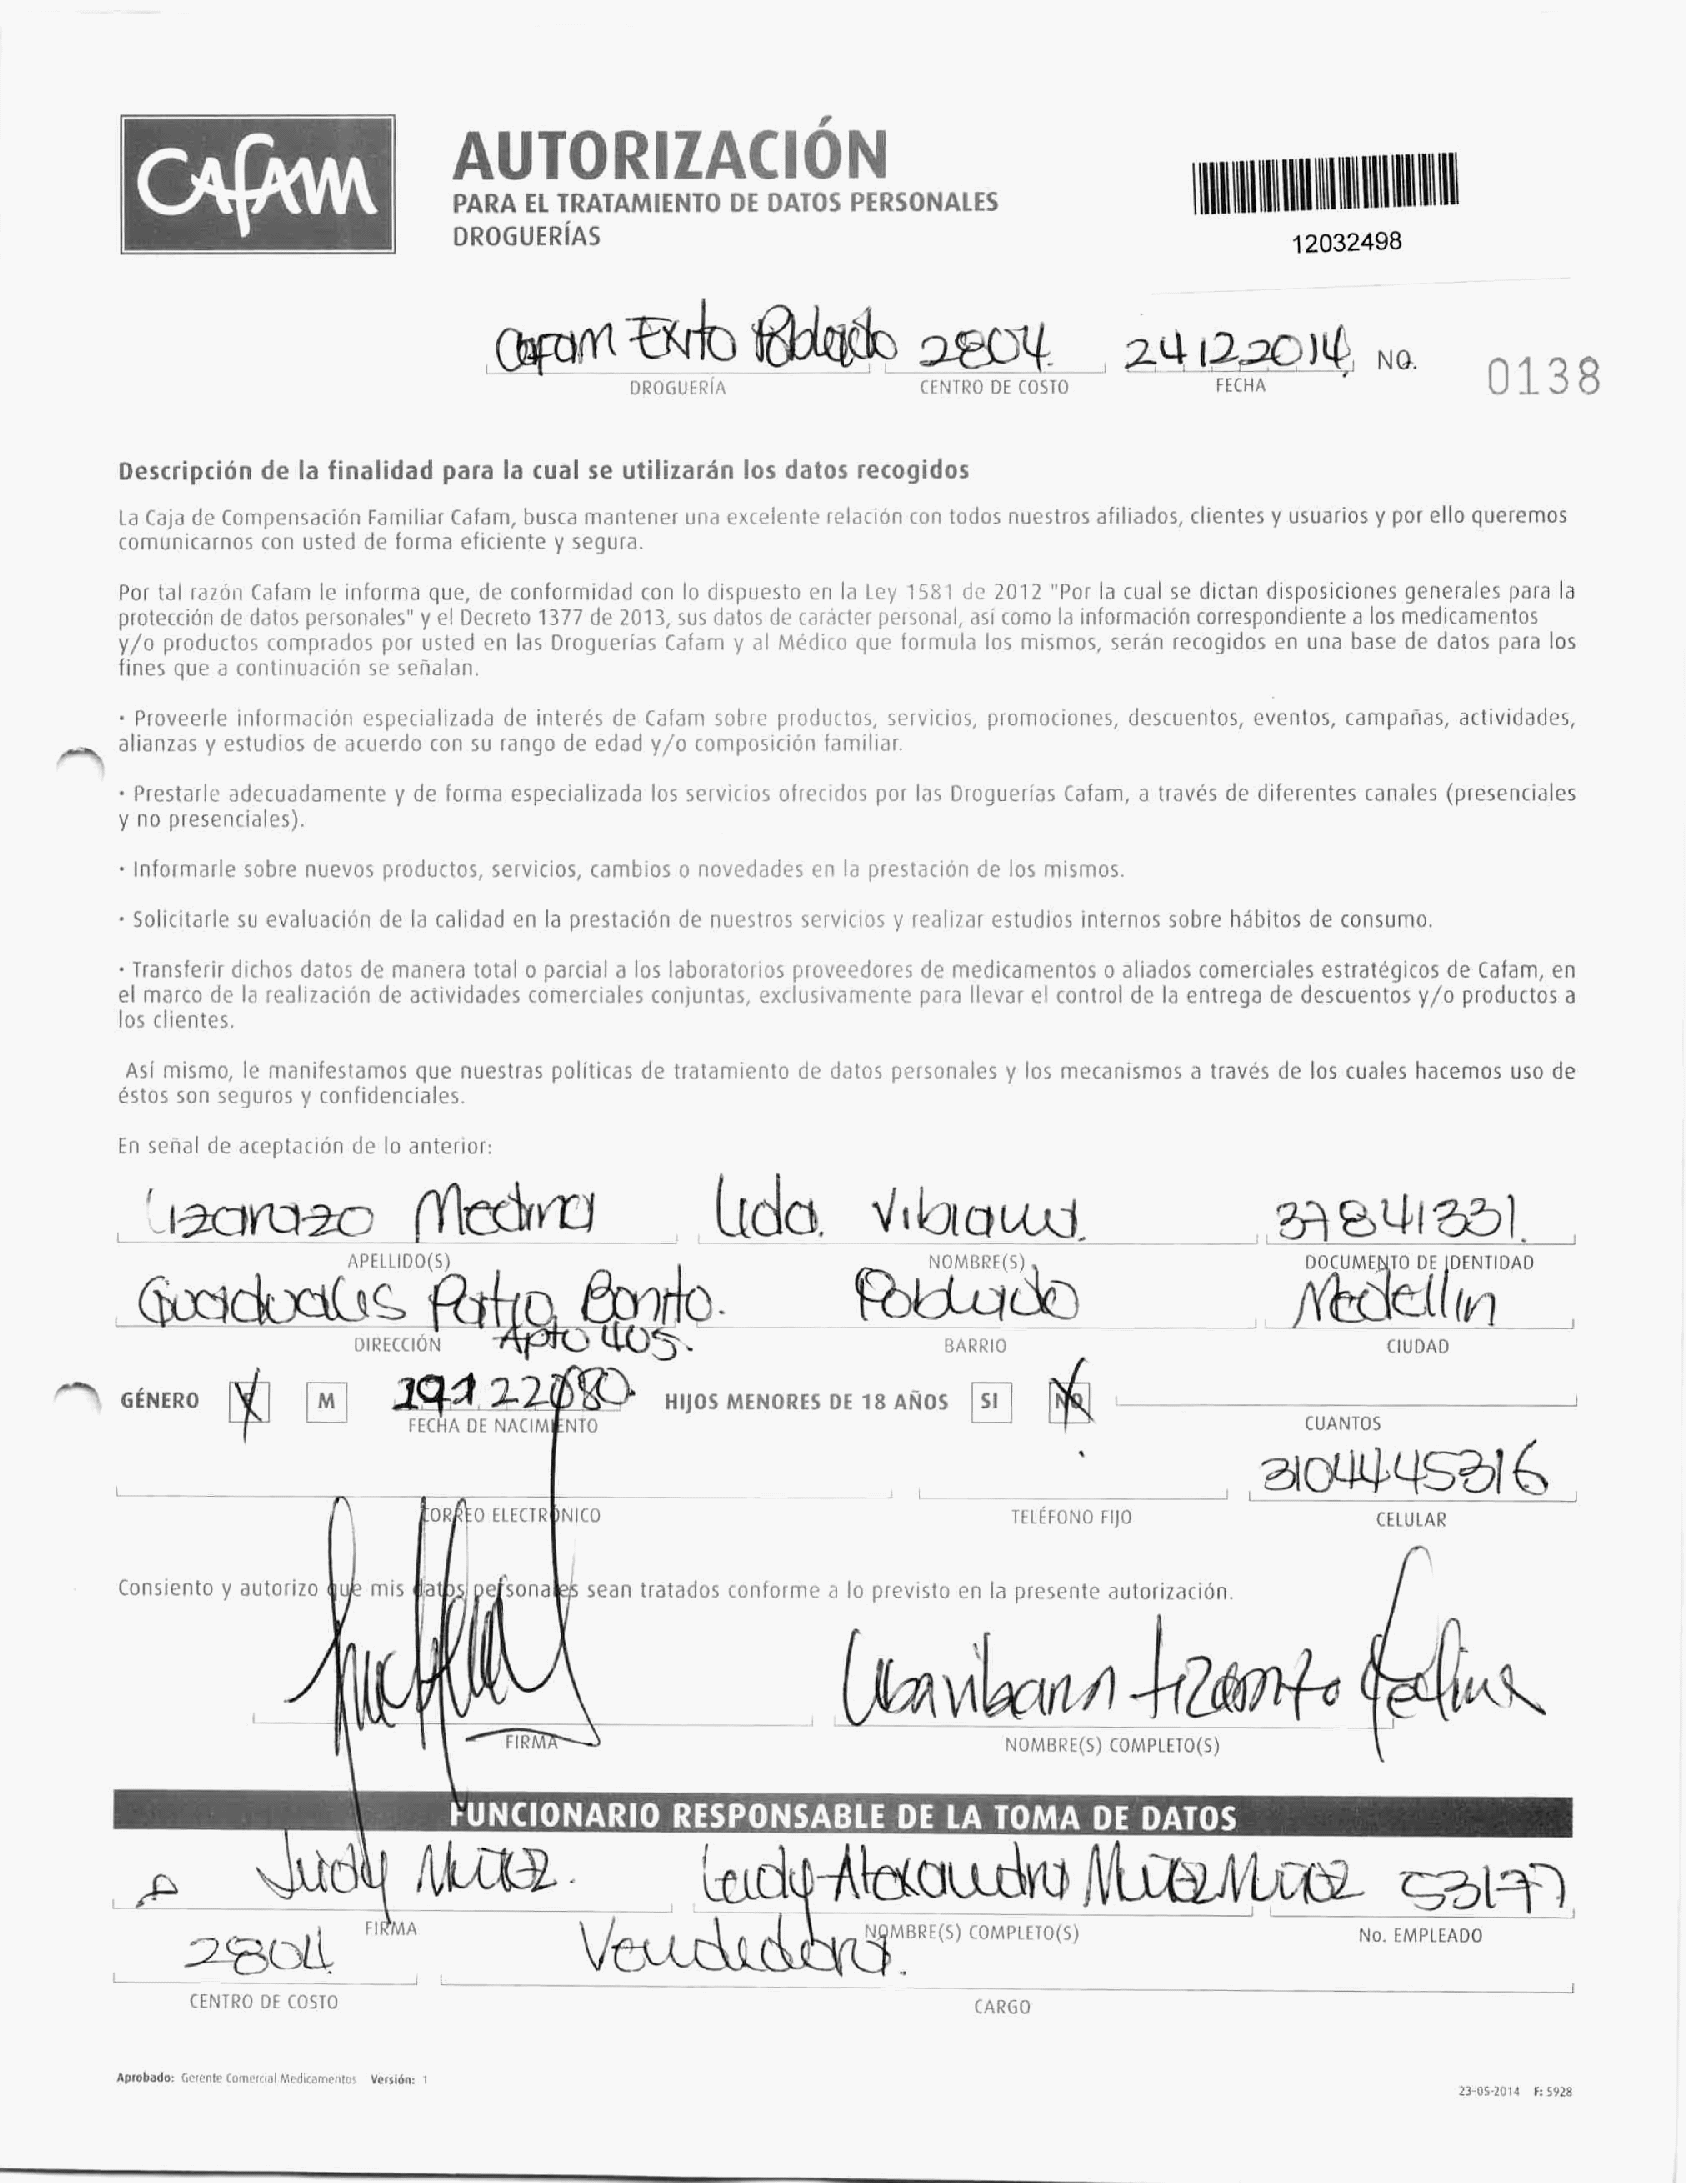 CAFAM
AUTORIZACIÓN
PARA EL TRATAMIENTO DE DATOS PERSONALES
DROGUERÍAS
12032498
Cafam Exito Poblado 2804 24 12 2014 NO. 0138
DROGUERÍA CENTRO DE COSTO FECHA
Descripción de la finalidad para la cual se utilizarán los datos recogidos
La Caja de Compensación Familiar Cafam, busca mantener una excelente relación con todos nuestros afiliados, clientes y usuarios y por ello queremos
comunicarnos con usted de forma eficiente y segura.
Por tal razón Cafam le informa que, de conformidad con lo dispuesto en la Ley 1581 de 2012 "Por la cual se dictan disposiciones generales para la
protección de datos personales" y el Decreto 1377 de 2013, sus datos de carácter personal, así como la información correspondiente a los medicamentos
y/o productos comprados por usted en las Droguerías Cafam y al Médico que formula los mismos, serán recogidos en una base de datos para los
fines que a continuación se señalan.
· Proveerle información especializada de interés de Cafam sobre productos, servicios, promociones, descuentos, eventos, campañas, actividades,
alianzas y estudios de acuerdo con su rango de edad y/o composición familiar.
· Prestarle adecuadamente y de forma especializada los servicios ofrecidos por las Droguerías Cafam, a través de diferentes canales (presenciales
y no presenciales).
· Informarle sobre nuevos productos, servicios, cambios o novedades en la prestación de los mismos.
· Solicitarle su evaluación de la calidad en la prestación de nuestros servicios y realizar estudios internos sobre hábitos de consumo.
· Transferir dichos datos de manera total o parcial a los laboratorios proveedores de medicamentos o aliados comerciales estratégicos de Cafam, en
el marco de la realización de actividades comerciales conjuntas, exclusivamente para llevar el control de la entrega de descuentos y/o productos a
los clientes.
Así mismo, le manifestamos que nuestras políticas de tratamiento de datos personales y los mecanismos a través de los cuales hacemos uso de
éstos son seguros y confidenciales.
En señal de aceptación de lo anterior:
Lizarazo Medina Lida. Vibiana. 37841331.
APELLIDO(S) NOMBRE(S) DOCUMENTO DE IDENTIDAD
Guaduales Patio Bonito. Poblado Medellin
DIRECCIÓN Apto 405. BARRIO CIUDAD
GÉNERO M HIJOS MENORES DE 18 AÑOS SI NO
FECHA DE NACIMIENTO CUANTOS
3104445316
CORREO ELECTRÓNICO TELÉFONO FIJO CELULAR
Consiento y autorizo que mis datos personales sean tratados conforme a lo previsto en la presente autorización.
FIRMA NOMBRE(S) COMPLETO(S)
FUNCIONARIO RESPONSABLE DE LA TOMA DE DATOS
Leidy Alexandra 53177
FIRMA NOMBRE(S) COMPLETO(S) No. EMPLEADO
2804 Vendedora.
CENTRO DE COSTO CARGO
Aprobado: Gerente Comercial Medicamentos Versión: 1
23-05-2014 F: 5928